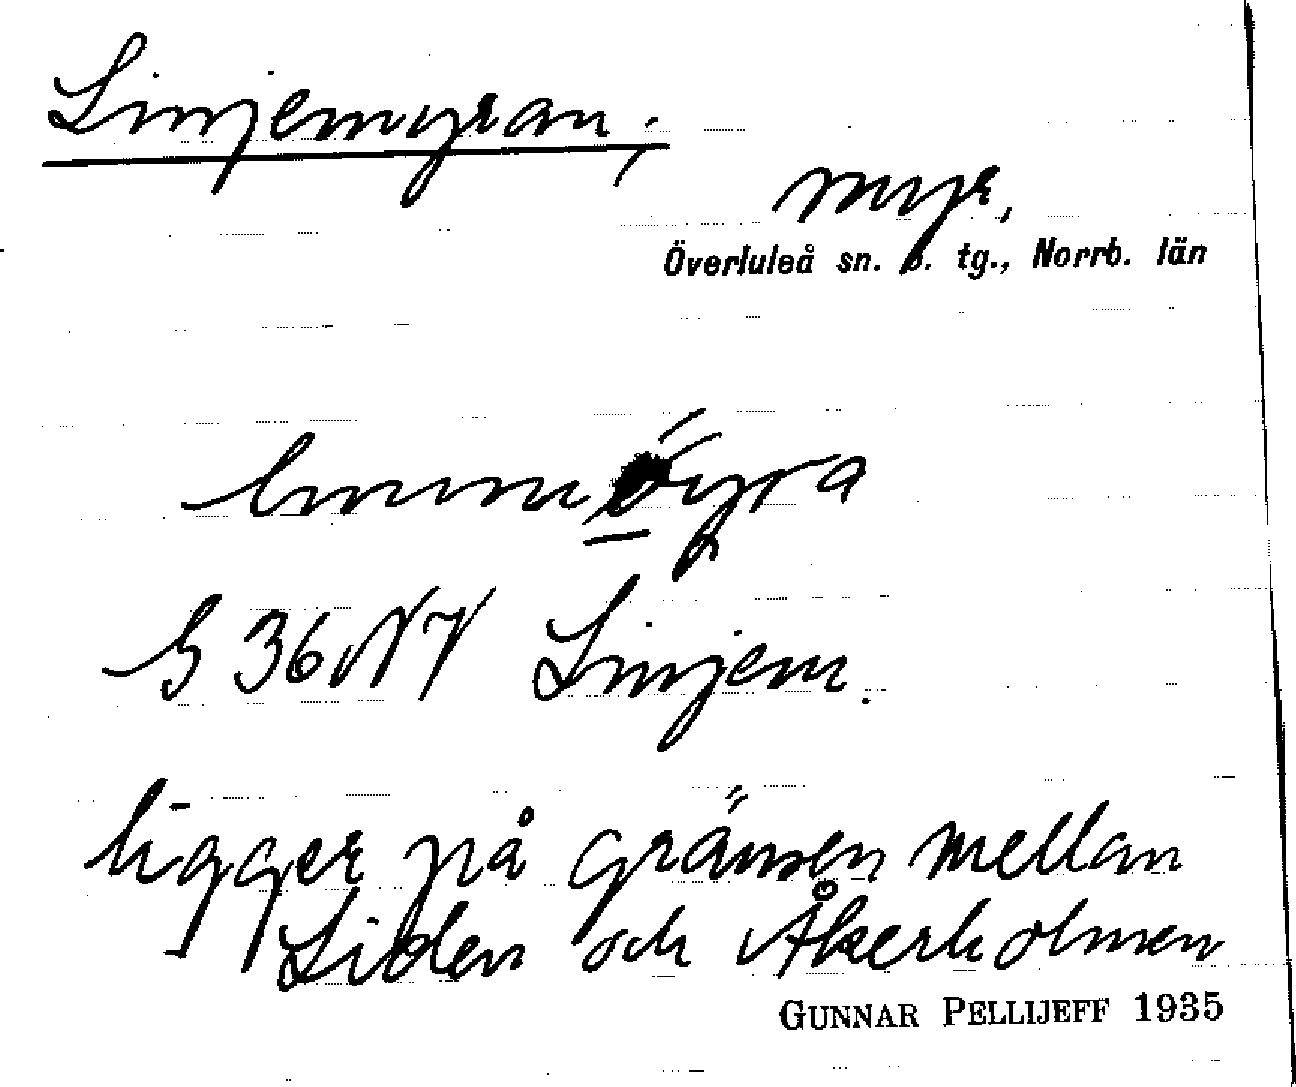 Linjemyran,
myr,
Överluleå sn. o. tg., Norrb. län
G 36 NV Linjem.
ligger på gränsen mellan
Liden och Åkerholmen
GUNNAR PELLIJEFF 1935